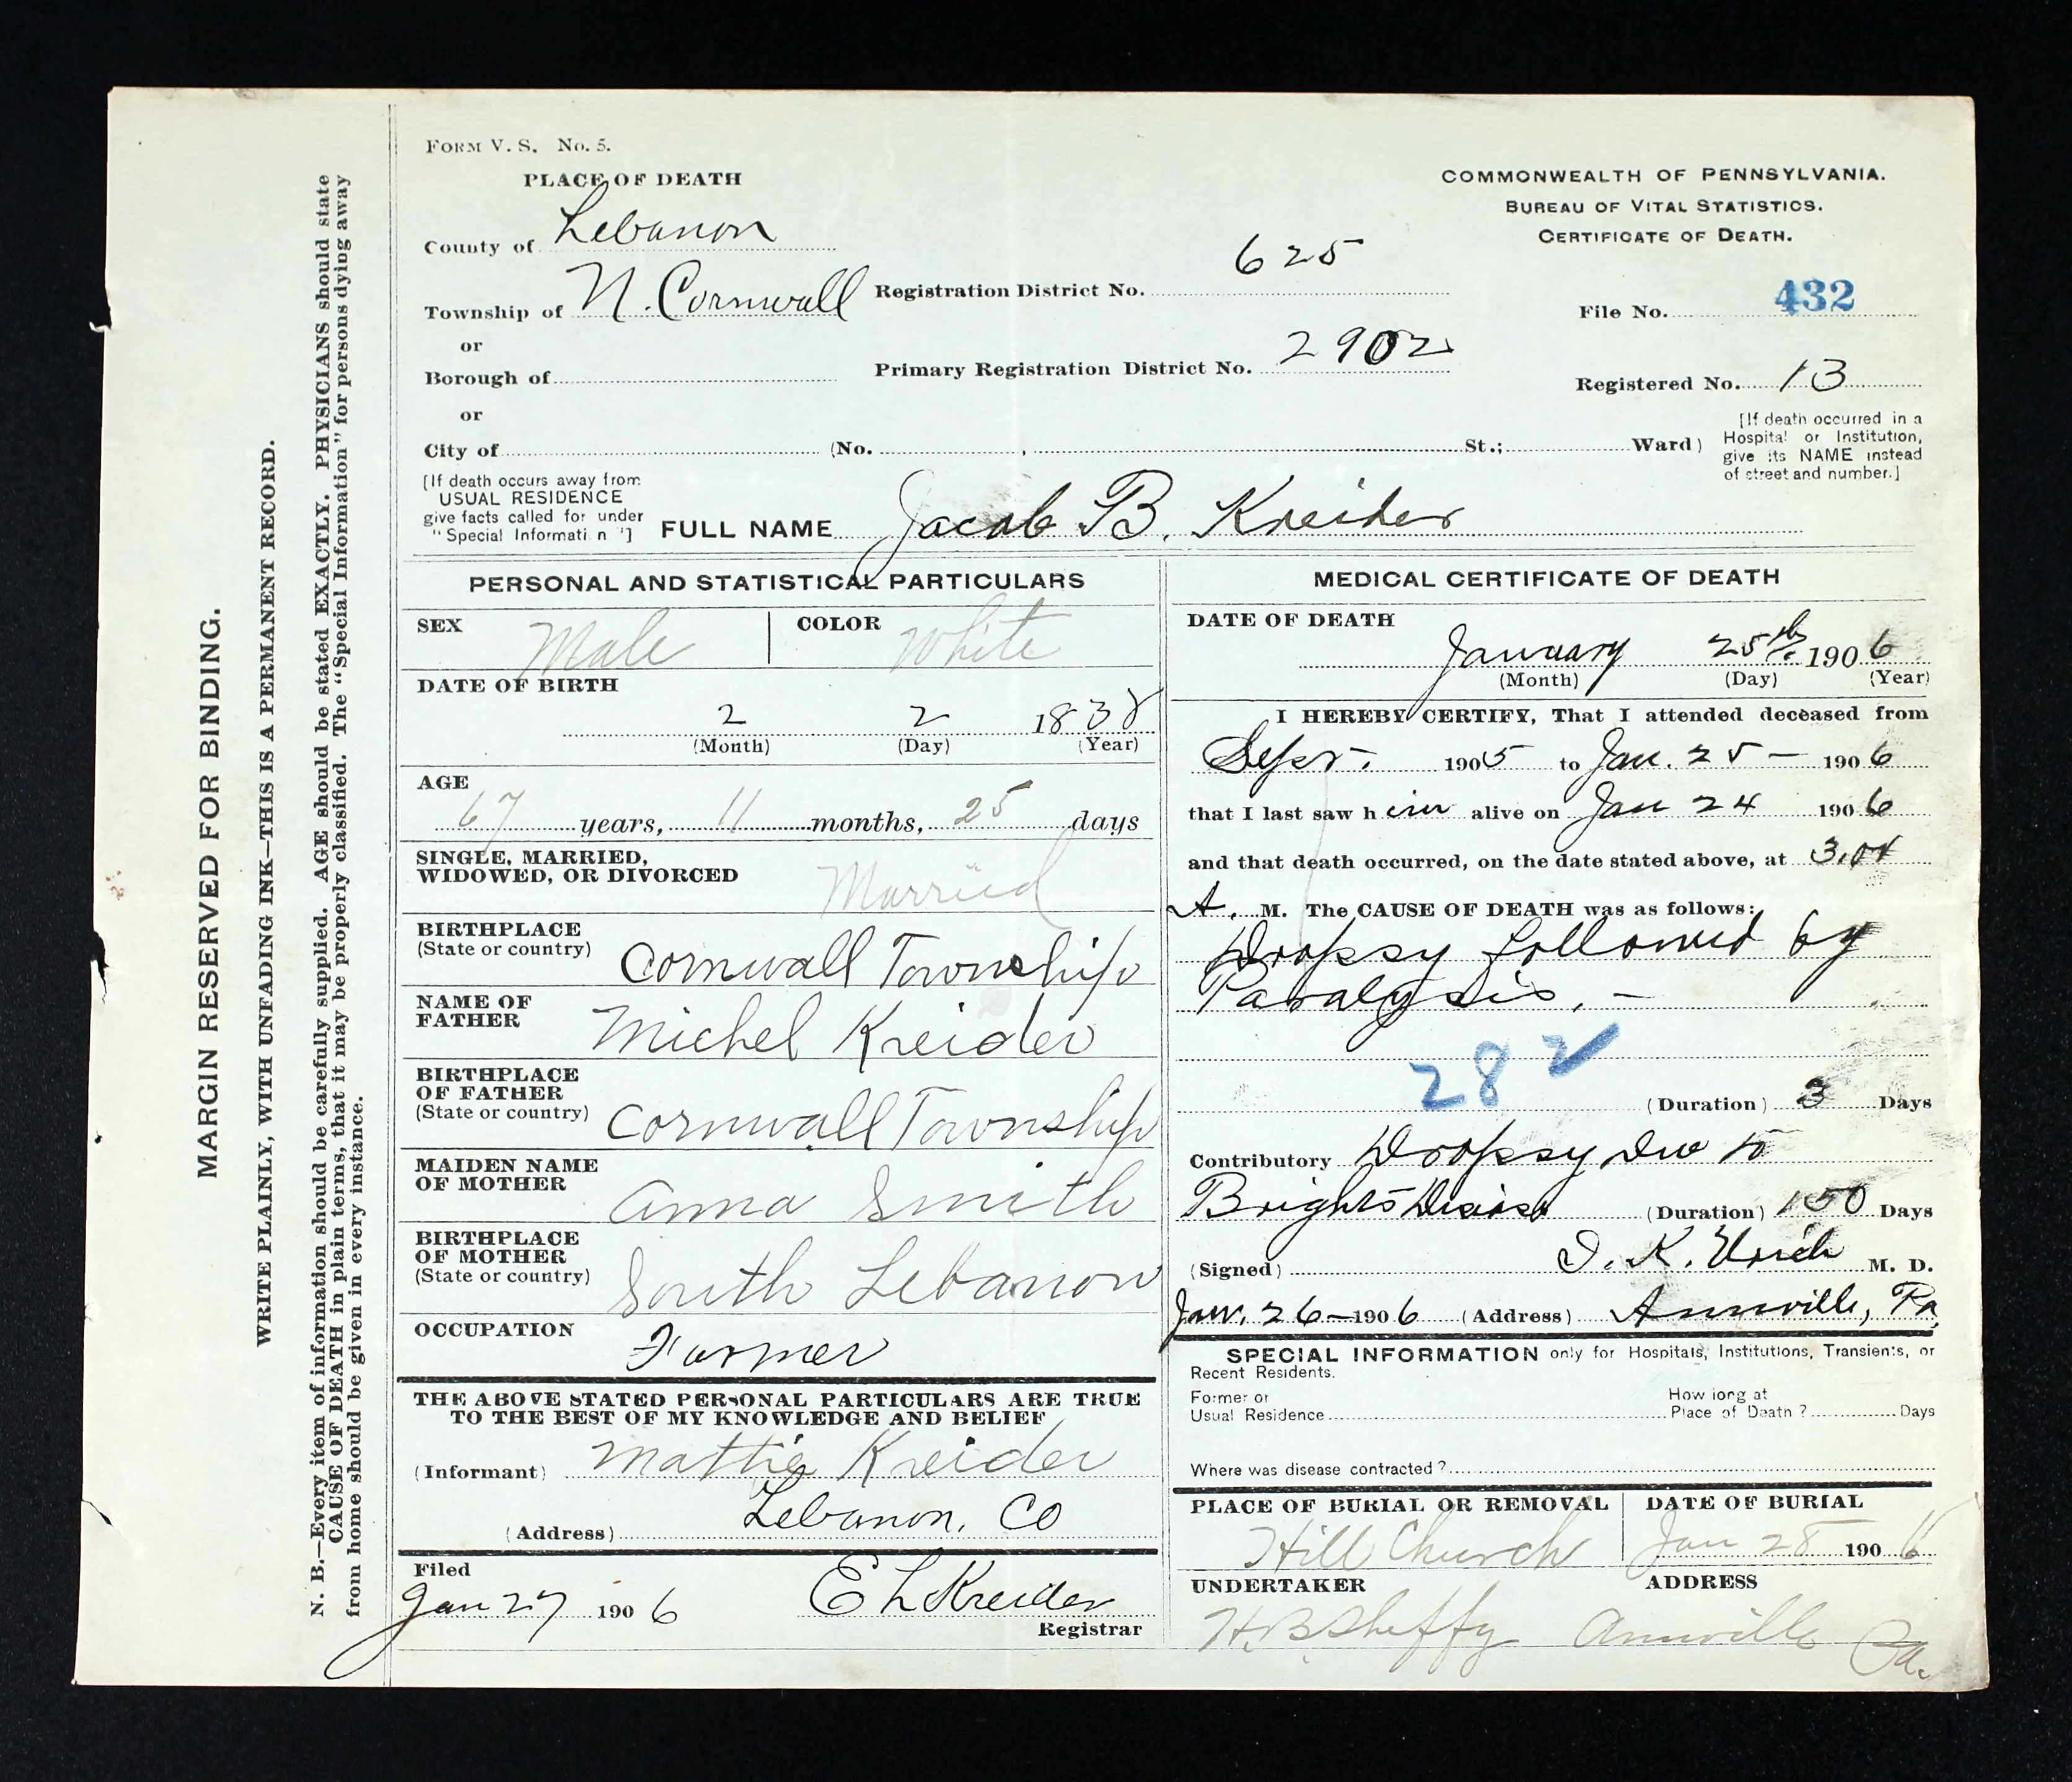 MARGIN RESERVED FOR BINDING.
WRITE PLAINLY, WITH UNFADING INK—THIS IS A PERMANENT RECORD.
N. B.—Every item of information should be carefully supplied. AGE should be stated EXACTLY. PHYSICIANS should state
CAUSE OF DEATH in plain terms, that it may be properly classified. The "Special Information" for persons dying away
from home should be given in every instance.
FORM V. S. No. 5.
PLACE OF DEATH
County of Lebanon
Township of N. Cornwall
or
Borough of
or
City of (No. , St.; Ward)
Registration District No. 625
Primary Registration District No. 2902
COMMONWEALTH OF PENNSYLVANIA.
BUREAU OF VITAL STATISTICS.
CERTIFICATE OF DEATH.
File No. 432
Registered No. 13
[If death occurred in a
Hospital or Institution,
give its NAME instead
of street and number.]
[If death occurs away from
USUAL RESIDENCE
give facts called for under
"Special Informati n "]
FULL NAME Jacob B. Kreider
PERSONAL AND STATISTICAL PARTICULARS
SEX Male
COLOR White
DATE OF BIRTH
2 2 1838
(Month) (Day) (Year)
AGE
67 years, 11 months, 25 days
SINGLE, MARRIED,
WIDOWED, OR DIVORCED Married
BIRTHPLACE
(State or country) Cornwall Township
NAME OF
FATHER Michel Kreider
BIRTHPLACE
OF FATHER
(State or country) Cornwall Township
MAIDEN NAME
OF MOTHER Anna Smith
BIRTHPLACE
OF MOTHER
(State or country) South Lebanon
OCCUPATION Farmer
THE ABOVE STATED PERSONAL PARTICULARS ARE TRUE
TO THE BEST OF MY KNOWLEDGE AND BELIEF
(Informant) Mattie Kreider
(Address) Lebanon, Co
Filed
Jan 27 1906 E L Kreider
Registrar
MEDICAL CERTIFICATE OF DEATH
DATE OF DEATH
January 25th 1906
(Month) (Day) (Year)
I HEREBY CERTIFY, That I attended deceased from
Sept. 1905 to Jan. 25 — 1906
that I last saw him alive on Jan 24 1906
and that death occurred, on the date stated above, at
A. M. The CAUSE OF DEATH was as follows:
Dropsy followed by
Paralysis. —
28 2
(Duration) 3 Days
Contributory Dropsy Due to
Brights Disease (Duration) 150 Days
(Signed) I. K. Urich M. D.
Jan. 26—1906 (Address) Annville, Pa
SPECIAL INFORMATION only for Hospitals, Institutions, Transients, or
Recent Residents.
Former or
Usual Residence
How long at
Place of Death ? Days
Where was disease contracted ?
PLACE OF BURIAL OR REMOVAL
Hill Church
DATE OF BURIAL
Jan 28 1906
UNDERTAKER
H. B. Sheffy
ADDRESS
Annville Pa.